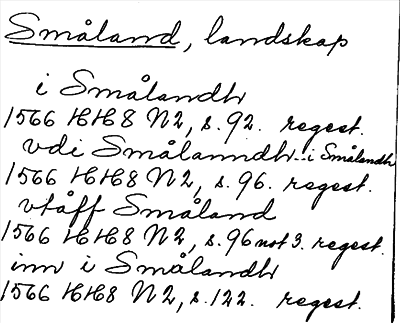 Småland, landskap
i Smålandh
1566 HH8 N2, s. 92. regest.
vdi Smålanndh. i Smålandh
1566 HH8 N2, s. 96. regest.
vtåff Småland
1566 HH8 N2, s. 96 not 3. regest.
inn i Smålandh
1566 HH8 N2, s. 122. regest.